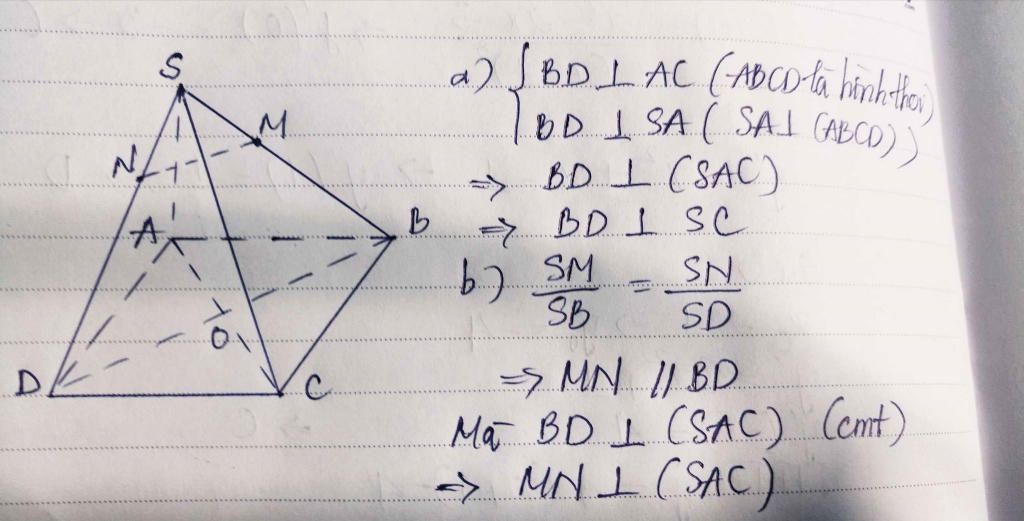 S
M
N
A
B
O
D
C
a) { BD ⊥ AC (ABCD là hình thoi)
BD ⊥ SA ( SA ⊥ (ABCD))
⇒ BD ⊥ (SAC)
⇒ BD ⊥ SC
b) SM/SB = SN/SD
⇒ MN // BD
Mà BD ⊥ (SAC) (cmt)
⇒ MN ⊥ (SAC)